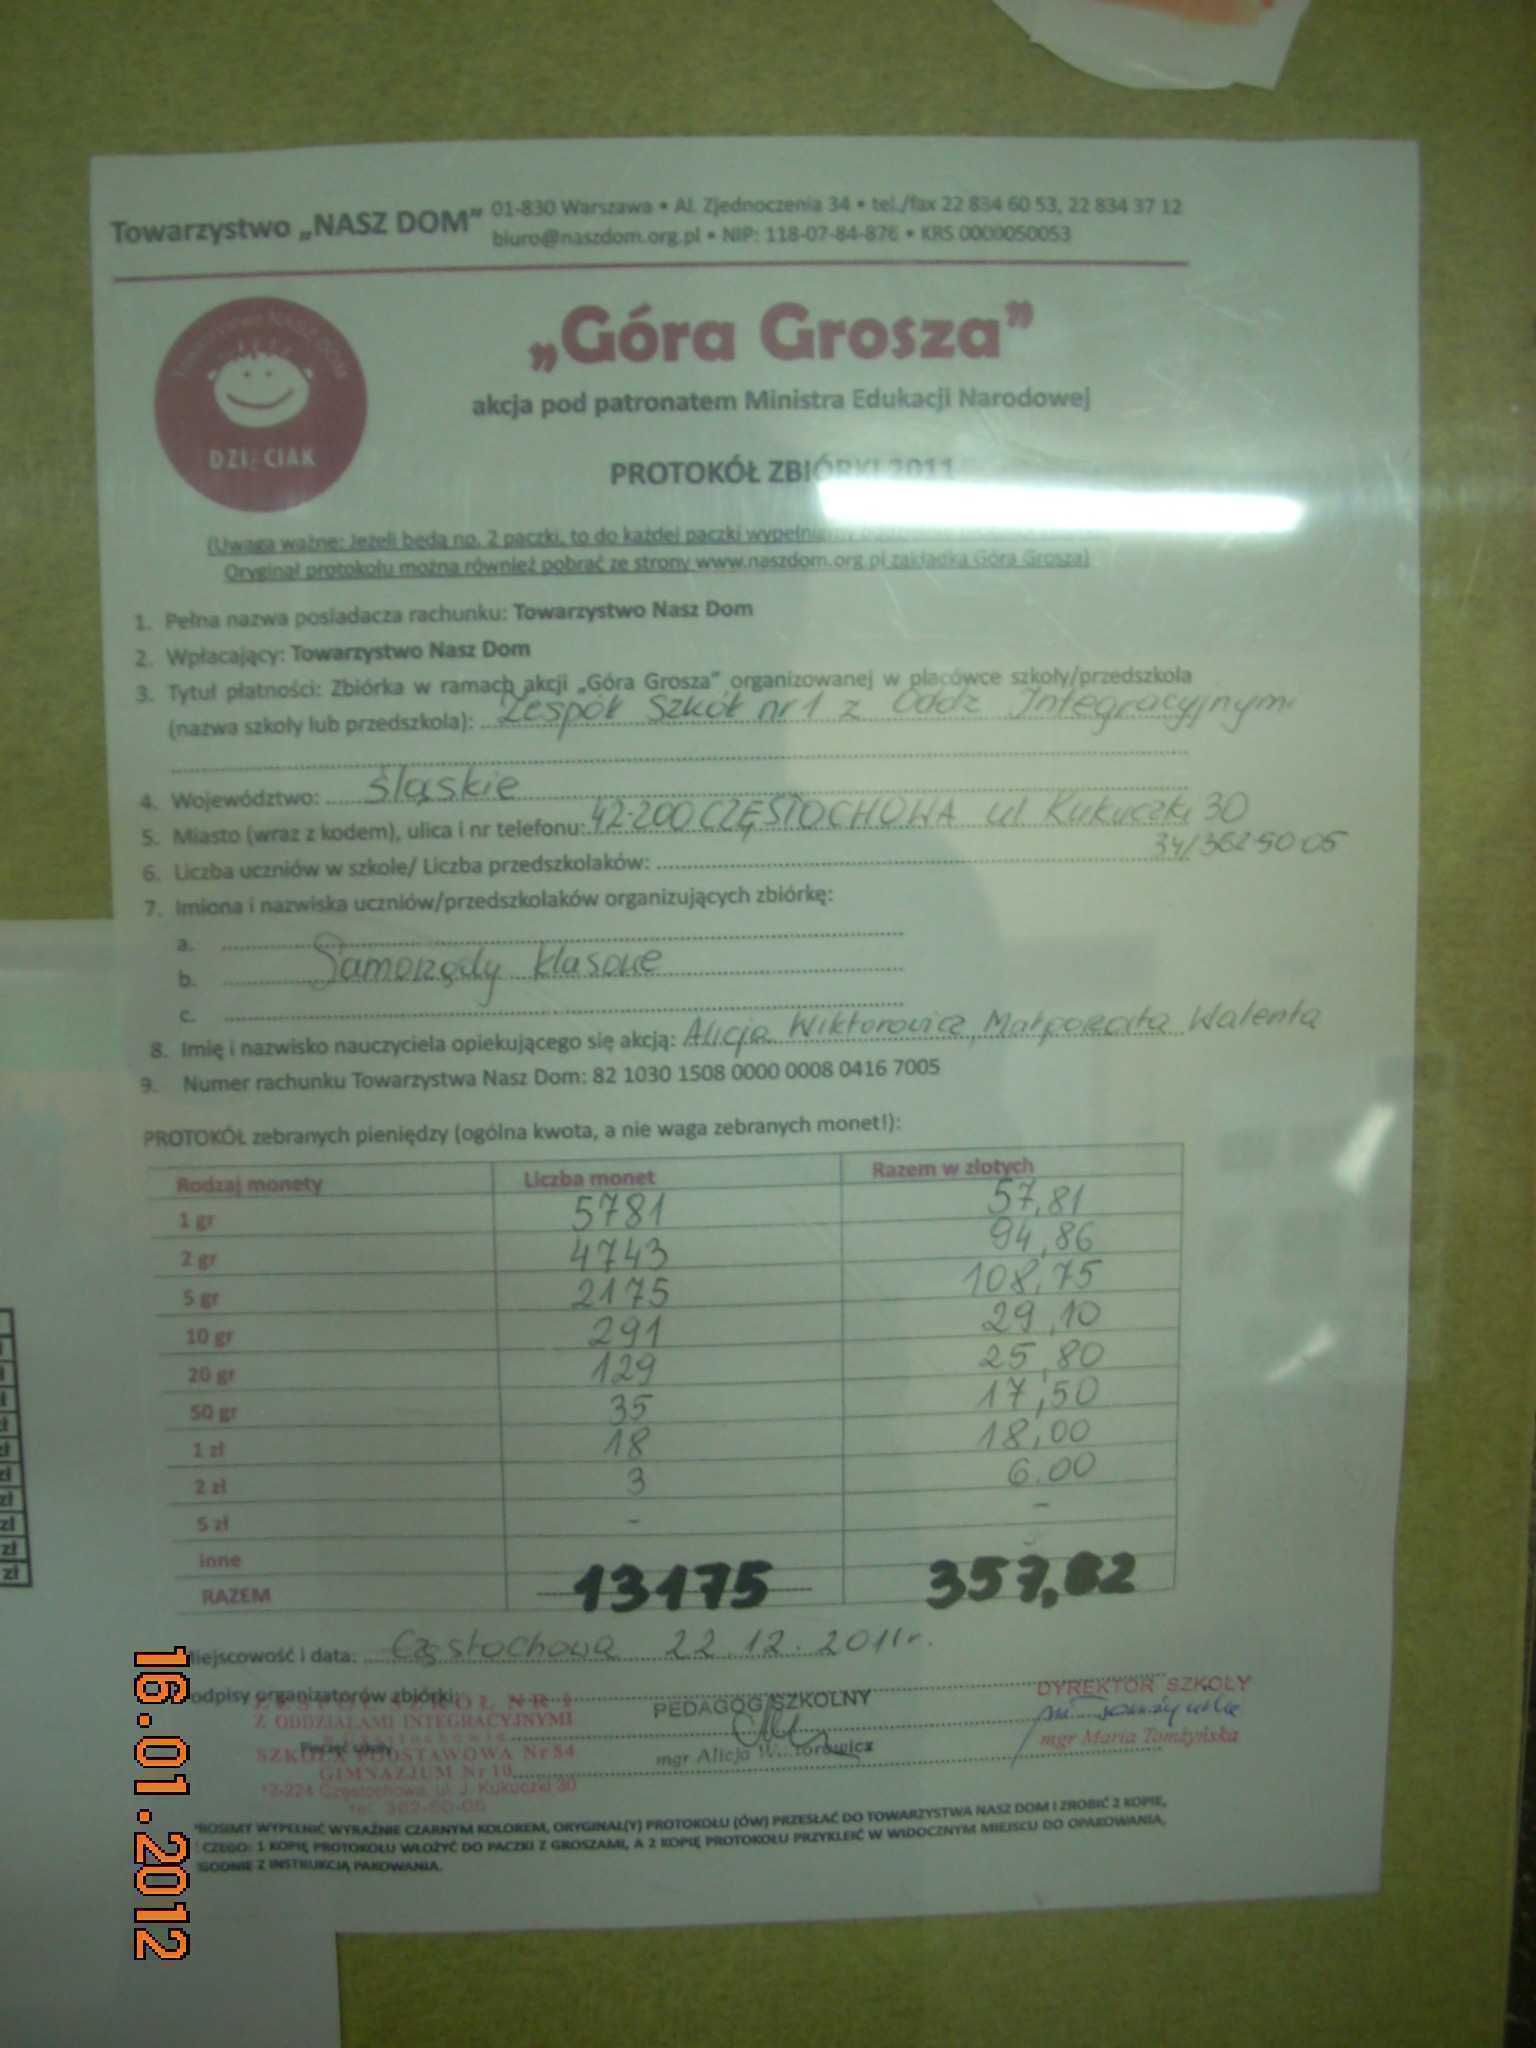 Towarzystwo „NASZ DOM” 01-830 Warszawa • Al. Zjednoczenia 34 • tel./fax 22 834 60 53, 22 834 37 12
biuro@naszdom.org.pl • NIP: 118-07-84-876 • KRS 0000050053
Towarzystwo NASZ DOM
DZIECIAK
„Góra Grosza”
akcja pod patronatem Ministra Edukacji Narodowej
PROTOKÓŁ ZBIÓRKI 2011
(Uwaga ważne: Jeżeli będą np. 2 paczki, to do każdej paczki wypełniamy
Oryginał protokołu można również pobrać ze strony www.naszdom.org.pl zakładka Góra Grosza)
1. Pełna nazwa posiadacza rachunku: Towarzystwo Nasz Dom
2. Wpłacający: Towarzystwo Nasz Dom
3. Tytuł płatności: Zbiórka w ramach akcji „Góra Grosza” organizowanej w placówce szkoły/przedszkola
(nazwa szkoły lub przedszkola): Zespół Szkół nr 1 z Oddz Integracyjnymi
4. Województwo: śląskie
5. Miasto (wraz z kodem), ulica i nr telefonu: 42-200 CZĘSTOCHOWA ul Kukuczki 30
34/362-50-05
6. Liczba uczniów w szkole/ Liczba przedszkolaków:
7. Imiona i nazwiska uczniów/przedszkolaków organizujących zbiórkę:
a.
b. Samorządy klasowe
c.
8. Imię i nazwisko nauczyciela opiekującego się akcją: Alicja Wiktorowicz, Małgorzata Walenta
9. Numer rachunku Towarzystwa Nasz Dom: 82 1030 1508 0000 0008 0416 7005
PROTOKÓŁ zebranych pieniędzy (ogólna kwota, a nie waga zebranych monet!):
Rodzaj monety Liczba monet Razem w złotych
1 gr 5781 57,81
2 gr 4743 94,86
5 gr 2175 108,75
10 gr 291 29,10
20 gr 129 25,80
50 gr 35 17,50
1 zł 18 18,00
2 zł 3 6.00
5 zł - -
inne
RAZEM 13175 357,82
zł
zł
zł
zł
zł
zł
iejscowość i data: Częstochowa 22.12.2011r.
odpisy organizatorów zbiórki:
Z ODDZIAŁAMI INTEGRACYJNYMI
Pieczęć szkoły
SZKOŁA PODSTAWOWA Nr 54
GIMNAZJUM Nr 10
42-224 Częstochowa, ul. J. Kukuczki 30
tel. 362-50-05
PEDAGOG SZKOLNY
mgr Alicja Wiktorowicz
DYREKTOR SZKOŁY
mgr Maria Tomżyńska
PROSIMY WYPEŁNIĆ WYRAŹNIE CZARNYM KOLOREM, ORYGINAŁ(Y) PROTOKOŁU (ÓW) PRZESŁAĆ DO TOWARZYSTWA NASZ DOM I ZROBIĆ 2 KOPIE,
CZEGO: 1 KOPIĘ PROTOKOŁU WŁOŻYĆ DO PACZKI Z GROSZAMI, A 2 KOPIĘ PROTOKOŁU PRZYKLEIĆ W WIDOCZNYM MIEJSCU DO OPAKOWANIA,
GODNIE Z INSTRUKCJĄ PAKOWANIA.
16.01.2012